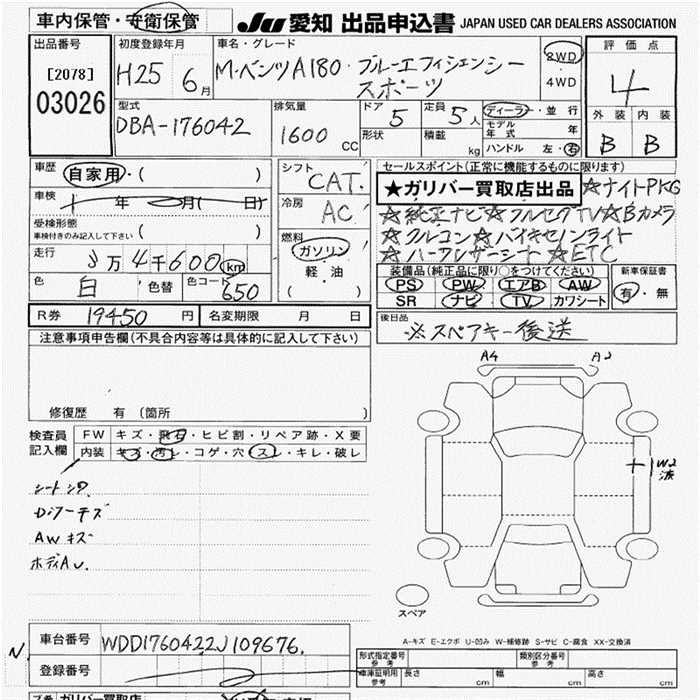 車内保管・守衛保管
JU 愛知 出品申込書 JAPAN USED CAR DEALERS ASSOCIATION
出品番号
[2078]
03026
初度登録年月
H25 6月
車名・グレード
M・ベンツA180・ブルーエフィシェンシー
スポーツ
2WD
4WD
評価点
4
外装 内装
B B
型式
DBA-176042
排気量
1600 CC
ドア 5
形状
定員 5人
積載 kg
ディーラー・並行
モデル年式 年
ハンドル 左・右
車歴 自家用・( )
車検 年 月( 日)
受検形態
車検付きのみ記入して下さい ( )
走行 万4千600km
色 白 色替 色コード 650
シフト CAT.
冷房 AC
燃料
ガソリン
軽・油
( )
セールスポイント(正常に機能するものに限ります)
★ガリバー買取店出品 ☆ナイトPKG
☆純正ナビ☆フルセグTV☆Bカメラ
☆フルコン☆バイキセノンライト
☆ハーフレザーシート☆ETC
装備品(純正品に限り○をつけてください)
PS PW エアB AW
SR ナビ TV カワシート
新車保証書
有・無
R券 19450 円 名変期限 月 日
後日品
※スペアキー後送
注意事項申告欄(不具合内容等は具体的に記入して下さい)
修復歴 有 (箇所 )
検査員
記入欄
FW キズ・飛石・ヒビ割・リペア跡・X要
内装 キズ・汚レ・コゲ・穴・スレ・キレ・破レ
シートシワ
AWキズ
A4 A2
W2
波
スペア
A-キズ E-エクボ U-凹み W-補修跡 S-サビ C-腐食 XX-交換済
N.
車台番号 WDD1760422J109676.
登録番号
型式指定番号
参考
類別区分番号
参考
車庫証明用
参考
長さ cm 幅 cm 高さ cm
ガリバー買取店